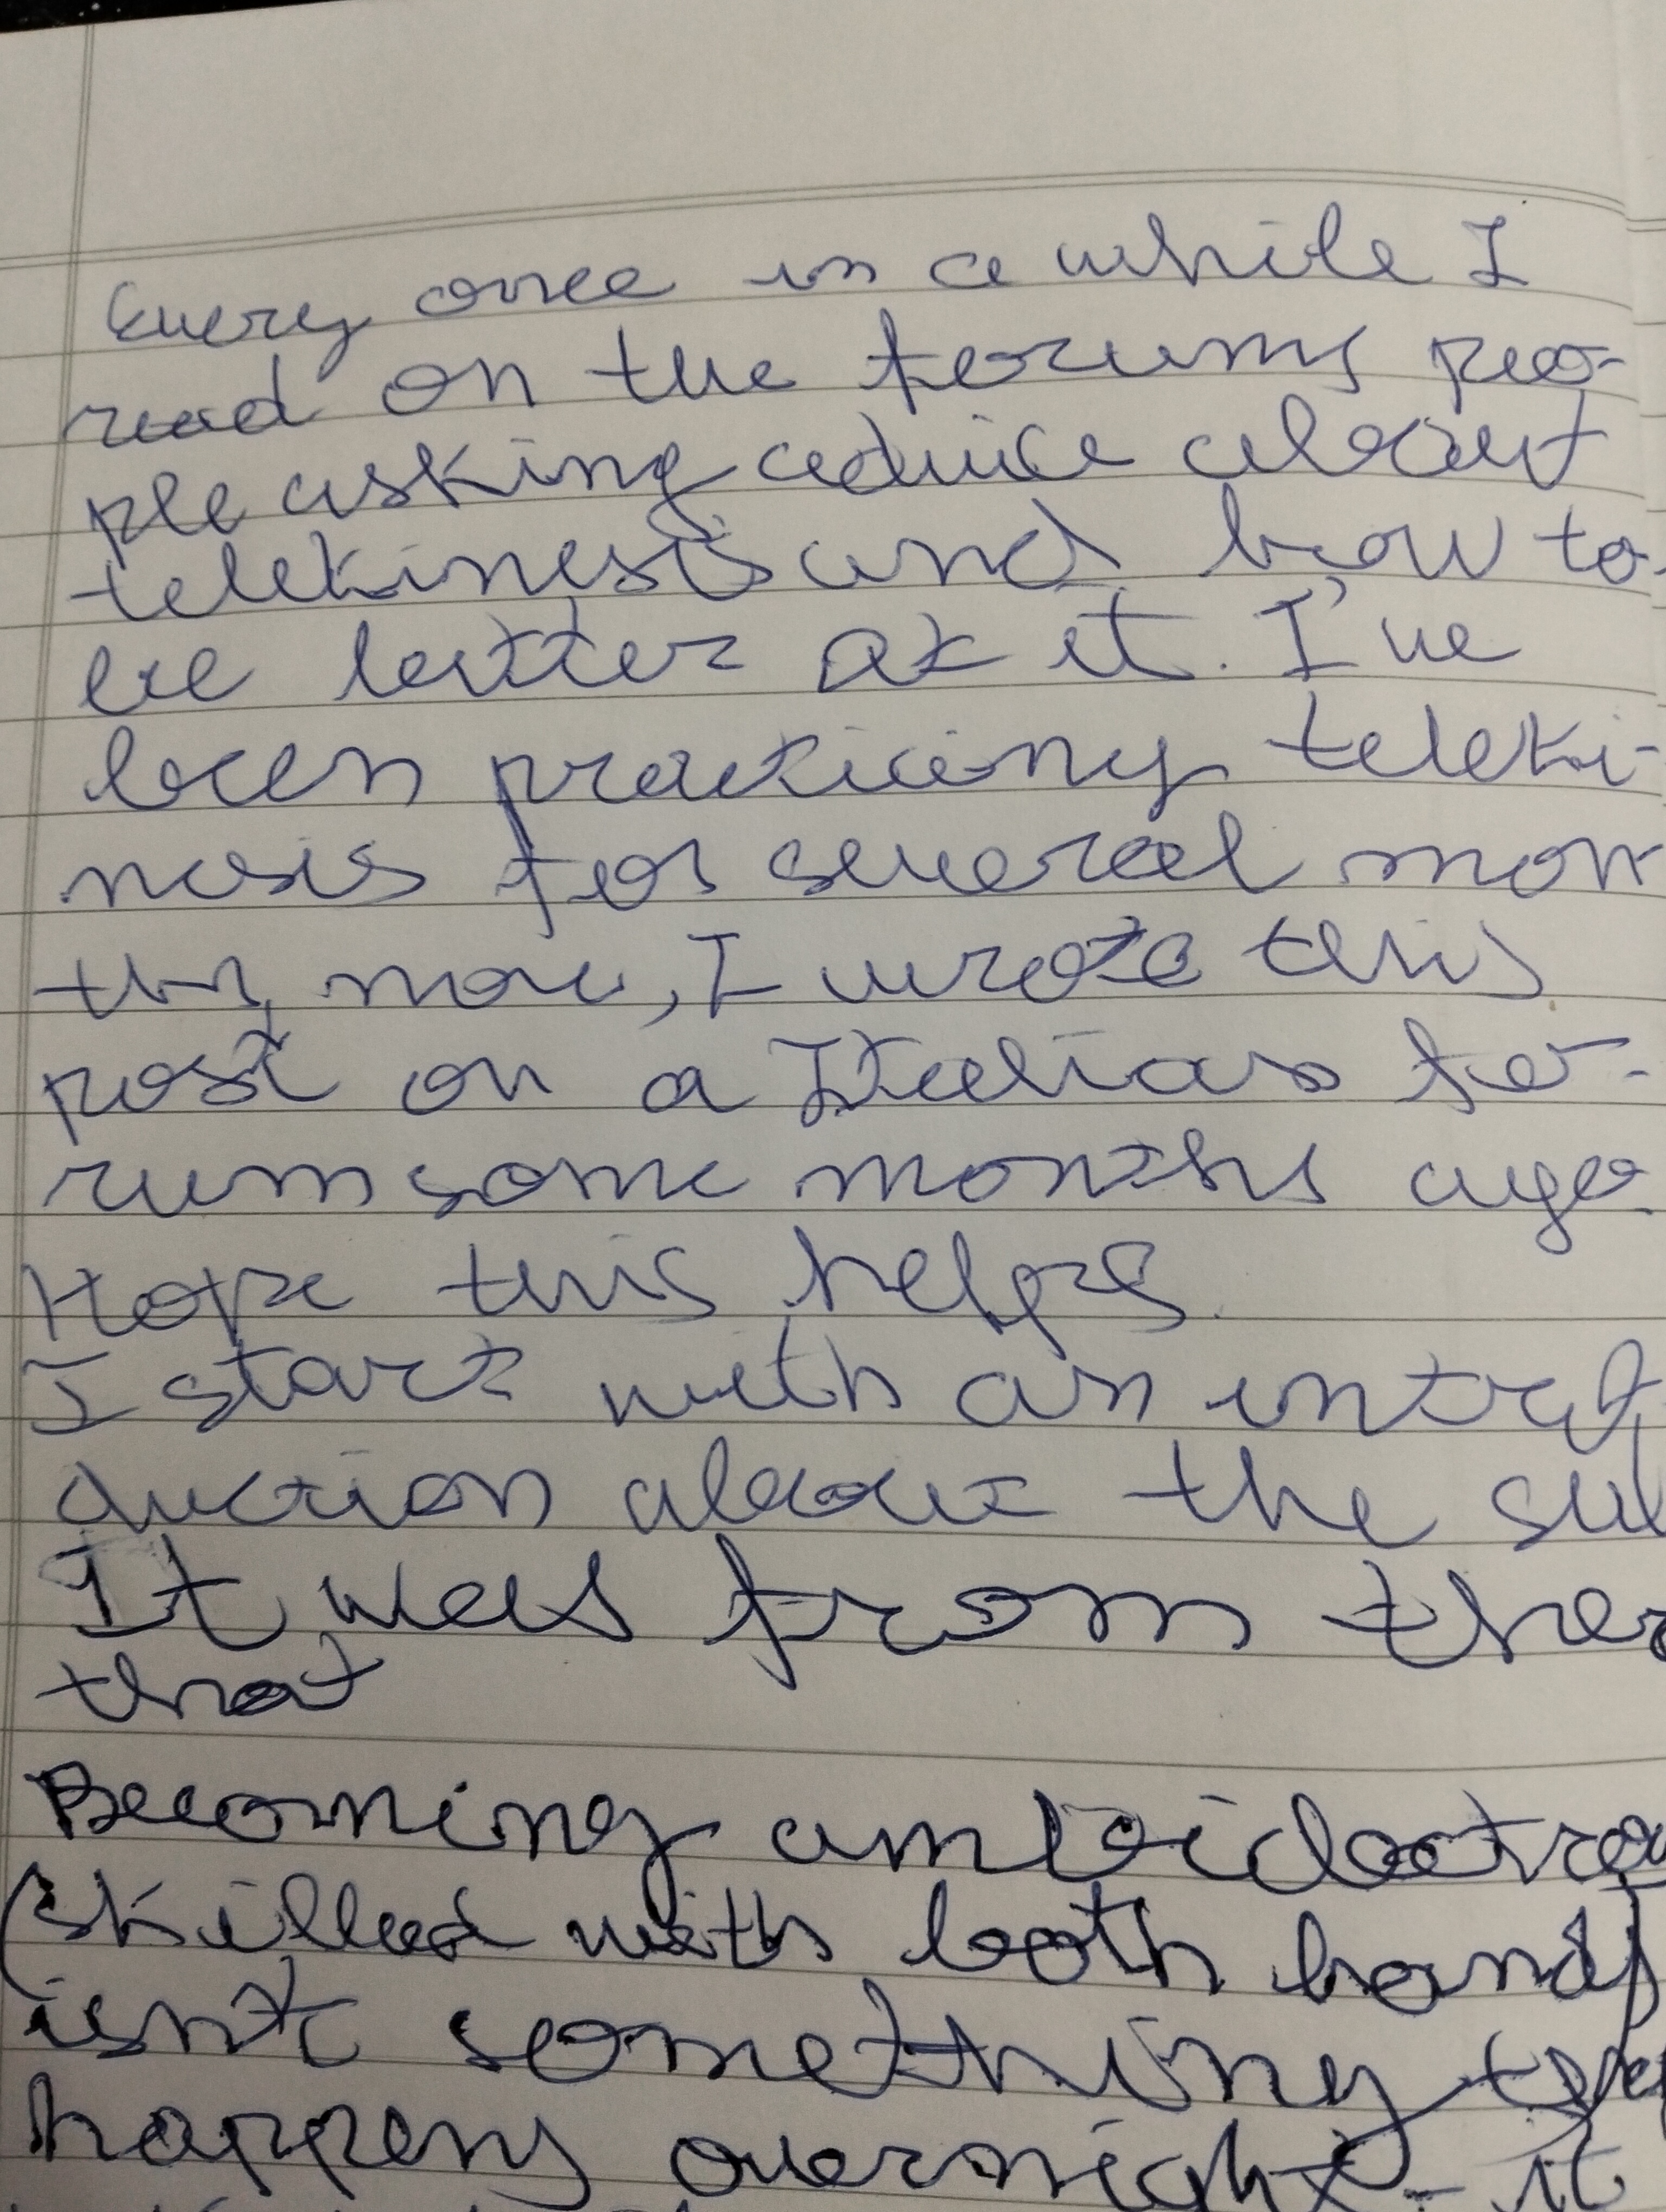 Every once in a while I
read on the forums peo-
ple asking advice about
telekinesis and how to
be better at it. I've
been practicing teleki-
nesis for several mon
ths now, I wrote this
post on a Italian fo-
rum some months ago.
Hope this helps.
I start with an intro
duction about the
It was from
that
Becoming ambidextrou
(skilled with both hands)
isn't something
happens overnight - it